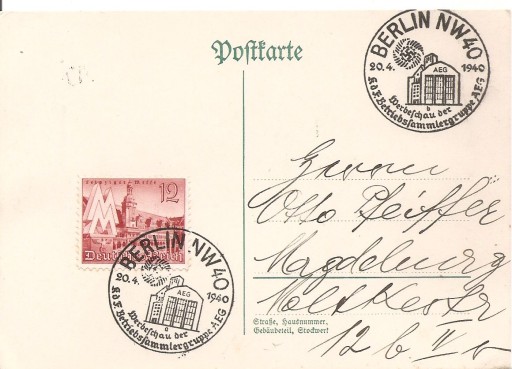 Postkarte
BERLIN NW 40
20.4. 1940
AEG
b
Werbeschau der
KdF. Betriebssammlergruppe AEG
Leipziger Messe
12
MM
Deutsches Reich
BERLIN NW 40
20.4. 1940
AEG
b
Werbeschau der
KdF. Betriebssammlergruppe AEG
Herrn
Otto Pfeiffer
Magdeburg
Moltkestr
12 b II
Straße, Hausnummer,
Gebäudeteil, Stockwerk